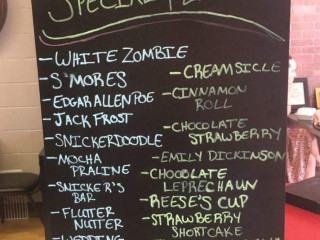 - WHITE ZOMBIE
- S'MORES
EDGAR ALLEN POE
- JACK FROST
SNICKERDOODLE
- MOCHA
PRALINE
- SNICKER'S
BAR
- FLUTTER
NUTTER
- WEDDING
- CREAMSICLE
- CINNAMON
ROLL
- CHOCOLATE
STRAWBERRY
- EMILY DICKINSON
- CHOCOLATE
LEPRECHAUN
- REESE'S CUP
- STRAWBERRY
SHORTCAKE